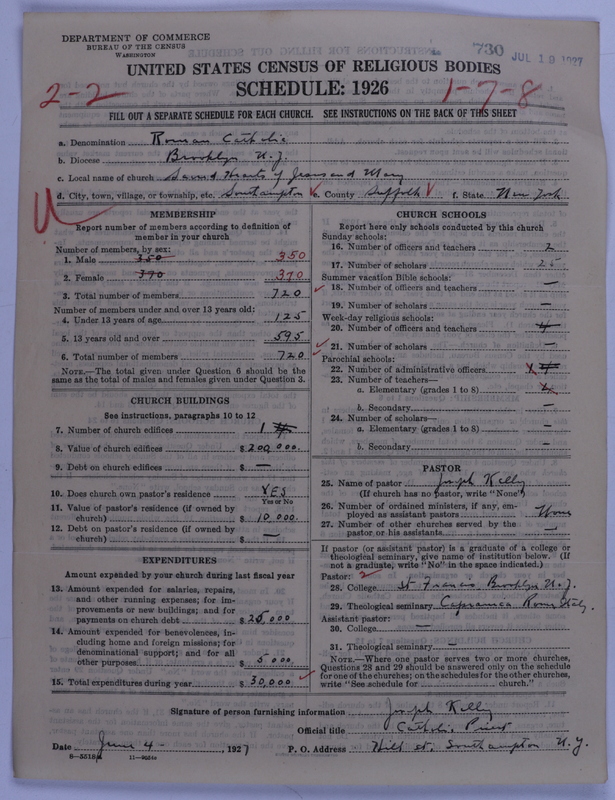 DEPARTMENT OF COMMERCE
BUREAU OF THE CENSUS
WASHINGTON
730 JUL 19 1927
UNITED STATES CENSUS OF RELIGIOUS BODIES
SCHEDULE: 1926
2-2
1-7-8
FILL OUT A SEPARATE SCHEDULE FOR EACH CHURCH. SEE INSTRUCTIONS ON THE BACK OF THIS SHEET
a. Denomination Roman Catholic
b. Diocese Brooklyn N.Y.
c. Local name of church Sacred Hearts of Jesus and Mary
d. City, town, village, or township, etc. Southampton e. County Suffolk f. State New York
MEMBERSHIP
Report number of members according to definition of
member in your church
Number of members, by sex:
1. Male 350 350
2. Female 370 370
3. Total number of members 720
Number of members under and over 13 years old:
4. Under 13 years of age 125
5. 13 years old and over 595
6. Total number of members 720
NOTE.—The total given under Question 6 should be the
same as the total of males and females given under Question 3.
CHURCH BUILDINGS
See instructions, paragraphs 10 to 12
7. Number of church edifices 1
8. Value of church edifices $ 200,000.
9. Debt on church edifices $ —
10. Does church own pastor's residence YES
Yes or No
11. Value of pastor's residence (if owned by
church) $ 10,000.
12. Debt on pastor's residence (if owned by
church) $ —
EXPENDITURES
Amount expended by your church during last fiscal year
13. Amount expended for salaries, repairs,
and other running expenses; for im-
provements or new buildings; and for
payments on church debt $ 25,000
14. Amount expended for benevolences, in-
cluding home and foreign missions; for
denominational support; and for all
other purposes $ 5000.
15. Total expenditures during year $ 30,000.
CHURCH SCHOOLS
Report here only schools conducted by this church
Sunday schools:
16. Number of officers and teachers 2
17. Number of scholars 25
Summer vacation Bible schools:
18. Number of officers and teachers —
19. Number of scholars —
Week-day religious schools:
20. Number of officers and teachers
21. Number of scholars —
Parochial schools:
22. Number of administrative officers
23. Number of teachers—
a. Elementary (grades 1 to 8)
b. Secondary —
24. Number of scholars—
a. Elementary (grades 1 to 8) —
b. Secondary —
PASTOR
25. Name of pastor Joseph Killy
(If church has no pastor, write "None")
26. Number of ordained ministers, if any, em-
ployed as assistant pastors None
27. Number of other churches served by the
pastor or his assistants —
If pastor (or assistant pastor) is a graduate of a college or
theological seminary, give name of institution below. (If
not a graduate, write "No" in the space indicated.)
Pastor: 2
28. College St Francis Brooklyn N.Y.
29. Theological seminary Capranica Rome Italy.
Assistant pastor:
30. College —
31. Theological seminary —
NOTE.—Where one pastor serves two or more churches,
Questions 28 and 29 should be answered only on the schedule
for one of the churches; on the schedules for the other churches,
write "See schedule for church."
Signature of person furnishing information Joseph Killy
Official title Catholic Priest
Date June 4- , 1927 P. O. Address Hill st, Southampton N.Y.
8-5518 11-9024